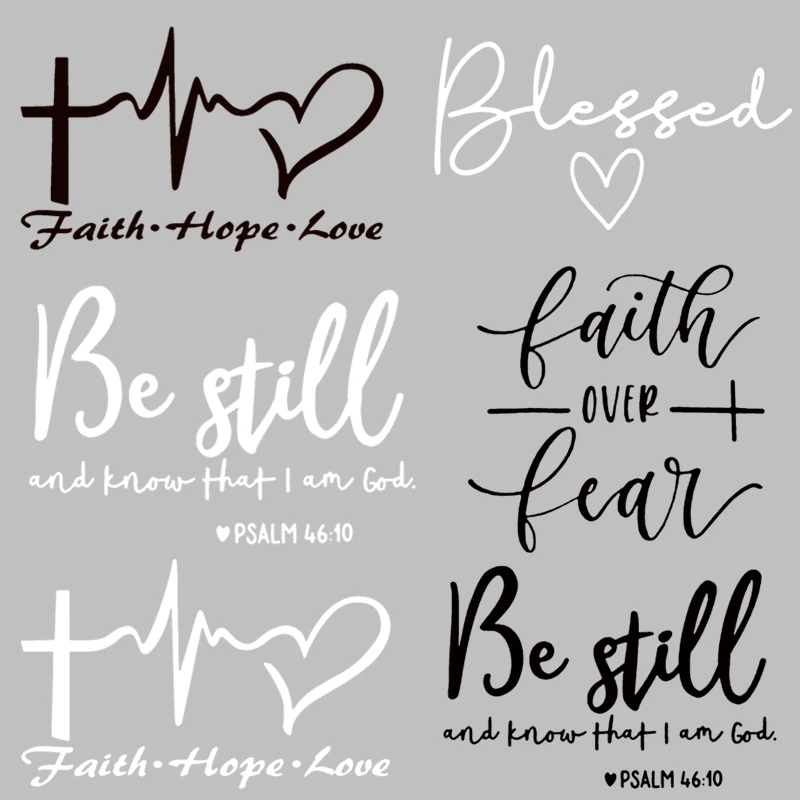 Faith•Hope•Love
Blessed
Be still
and know that I am God.
♥PSALM 46:10
faith
OVER
fear
Faith•Hope•Love
Be still
and know that I am God.
♥PSALM 46:10